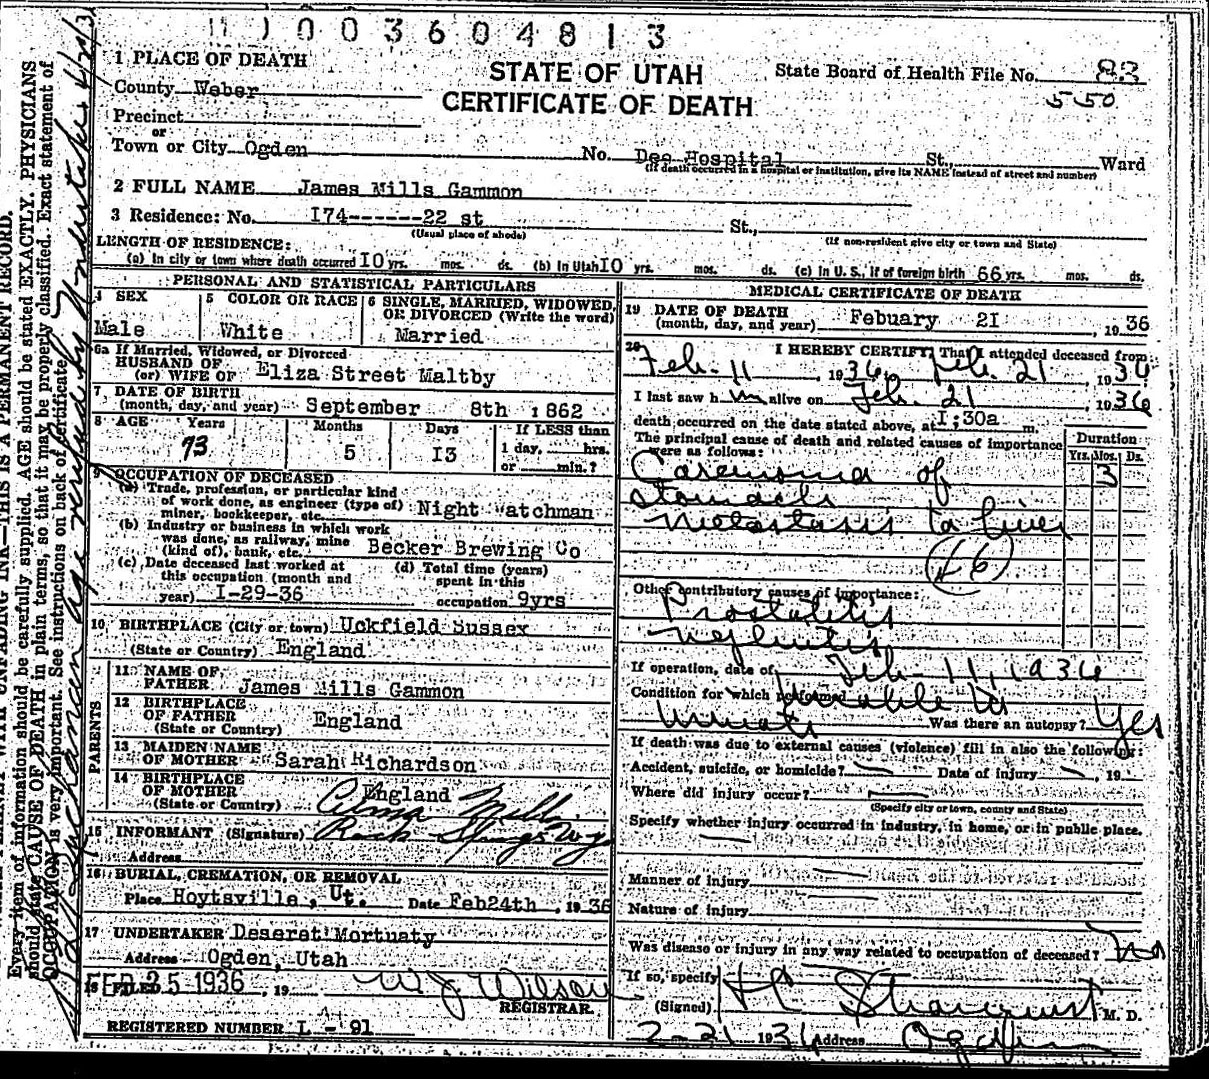 11003604813
1 PLACE OF DEATH
STATE OF UTAH
State Board of Health File No. 83
County Weber
CERTIFICATE OF DEATH
550
Precinct
or
Town or City Ogden No. Dee Hospital St., Ward
(If death occurred in a hospital or institution, give its NAME instead of street and number)
2 FULL NAME James Mills Gammon
3 Residence: No. I74------22 st St.,
(Usual place of abode) (If non-resident give city or town and State)
LENGTH OF RESIDENCE:
(a) In city or town where death occurred IO yrs. mos. ds. (b) In Utah IO yrs. mos. ds. (c) In U. S., if of foreign birth 66 yrs. mos. ds.
PERSONAL AND STATISTICAL PARTICULARS
4 SEX 5 COLOR OR RACE 6 SINGLE, MARRIED, WIDOWED, OR DIVORCED (Write the word)
Male White Married
6a If Married, Widowed, or Divorced
HUSBAND OF
(or) WIFE OF Eliza Street Maltby
7 DATE OF BIRTH
(month, day, and year) September 8th 1862
8 AGE Years Months Days If LESS than
73 5 I3 1 day, hrs.
or min.?
9 OCCUPATION OF DECEASED
(a) Trade, profession, or particular kind
of work done, as engineer (type of)
miner, bookkeeper, etc. Night Watchman
(b) Industry or business in which work
was done, as railway, mine
(kind of), bank, etc. Becker Brewing Co
(c) Date deceased last worked at (d) Total time (years)
this occupation (month and spent in this
year) I-29-36 occupation 9yrs
10 BIRTHPLACE (City or town) Uckfield Sussex
(State or Country) England
PARENTS
11 NAME OF
FATHER James Mills Gammon
12 BIRTHPLACE
OF FATHER England
(State or Country)
13 MAIDEN NAME
OF MOTHER Sarah Richardson
14 BIRTHPLACE
OF MOTHER England
(State or Country)
15 INFORMANT (Signature) Alma Mills
Rock Springs Wyo
Address
16 BURIAL, CREMATION, OR REMOVAL
Place Hoytsville, Ut. Date Feb24th, 1936
17 UNDERTAKER Deseret Mortuaty
Address Ogden, Utah
18 FILED FEB 25 1936, 19 W J Wilson
REGISTRAR.
REGISTERED NUMBER I - 91
MEDICAL CERTIFICATE OF DEATH
19 DATE OF DEATH
(month, day, and year) Febuary 2I, 1936
20 I HEREBY CERTIFY, That I attended deceased from
Feb. 11, 1936, Feb. 21, 1936
I last saw h im alive on Feb. 21, 1936
death occurred on the date stated above, at I:30a m.
The principal cause of death and related causes of importance Duration
were as follows: Yrs. Mos. Ds.
Carcinoma of 3
stomach
metastasis to liver
(46)
Other contributory causes of importance:
Prostatitis
Nephritis
If operation, date of Feb. 11, 1936
Condition for which performed unable to
urinate Was there an autopsy? Yes
If death was due to external causes (violence) fill in also the following:
Accident, suicide, or homicide? — Date of injury —, 19
Where did injury occur? —
(Specify city or town, county and State)
Specify whether injury occurred in industry, in home, or in public place.
Manner of injury
Nature of injury
Was disease or injury in any way related to occupation of deceased? No
If so, specify
(Signed) Stranquist M. D.
2-21 1936 Address Ogden
THIS IS A PERMANENT RECORD.
Every item of information should be carefully supplied. AGE should be stated EXACTLY. PHYSICIANS
should state CAUSE OF DEATH in plain terms, so that it may be properly classified. Exact statement of
OCCUPATION is very important. See instructions on back of certificate.